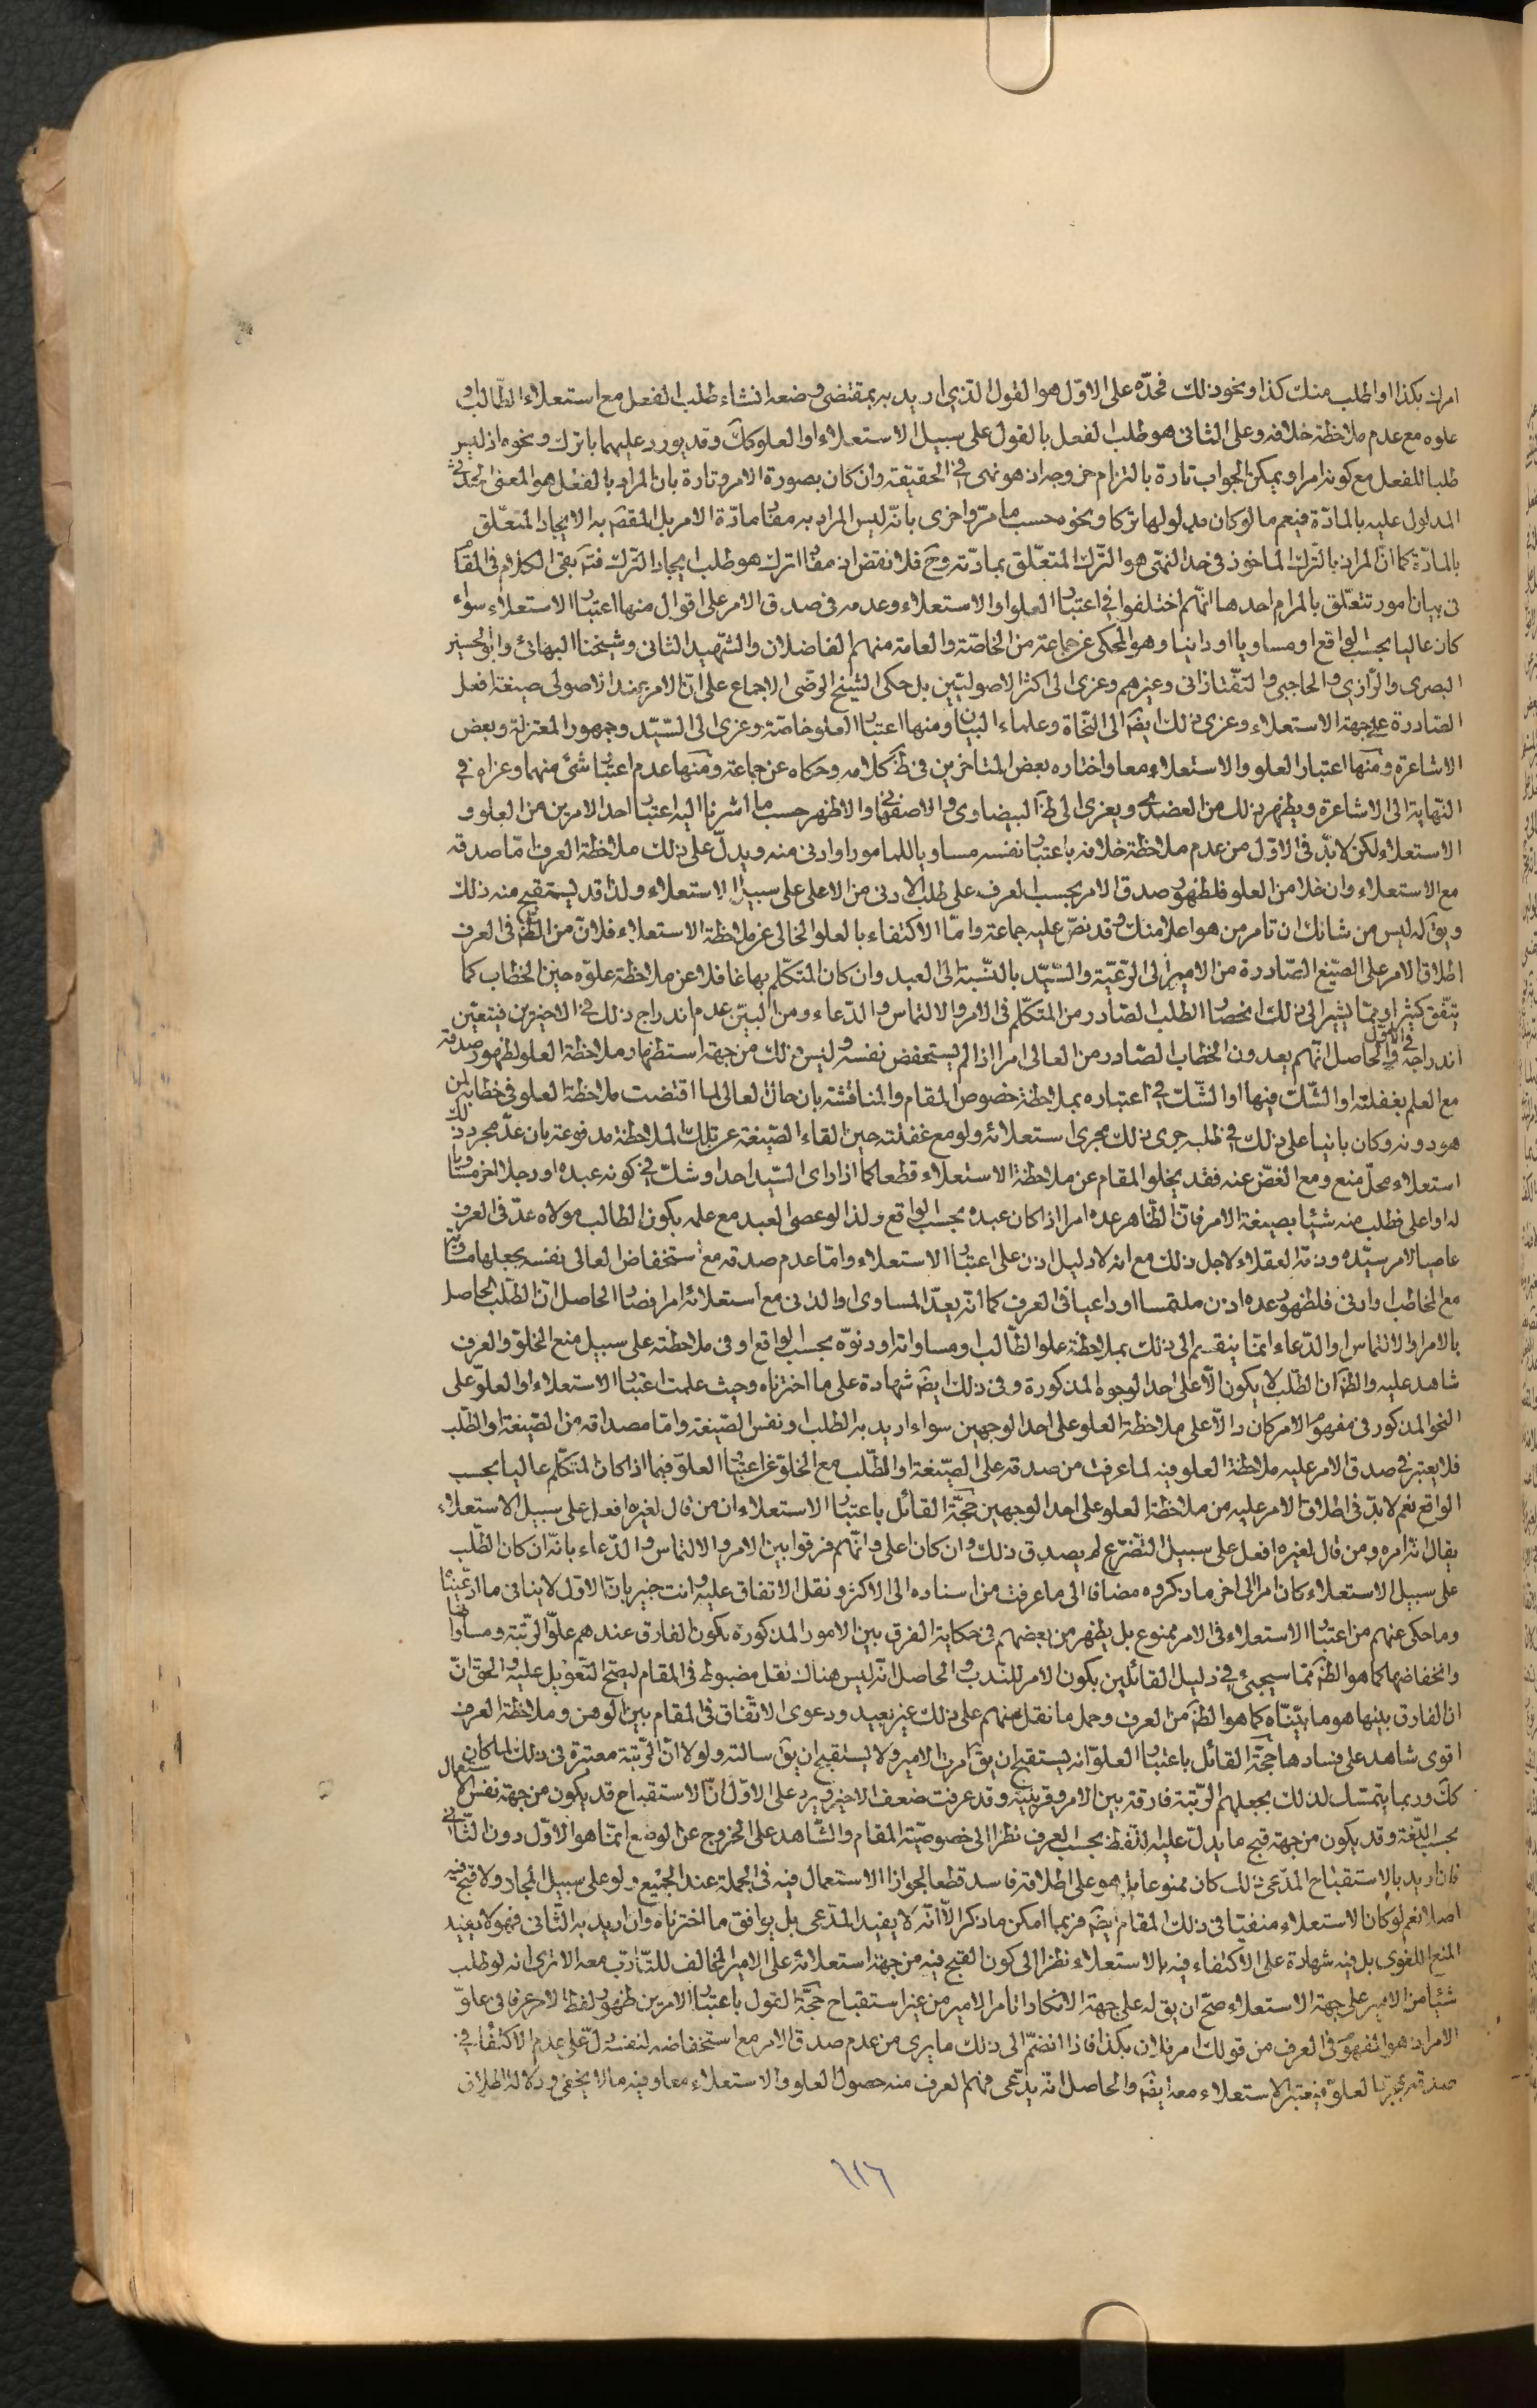 امرك بكذا او اطلب منك كذا ونحو ذلك فحدّه على الاوّل هو القول الذي اريد به بمقتضى وضعه انشاء طلب الفعل مع استعلاء الطّالب او
علوه مع عدم ملاحظة خلافه وعلى الثانى هو طلب الفعل بالقول على سبيل الاستعلاء او العلو كك وقد يورد عليهما باترك ونحوه اذ ليس
طلبا للفعل مع كونه امرا ويمكن الجواب تارة بالتزام خروجه اذ هو نهى في الحقيقة وان كان بصورة الامر وتارة بان المراد بالفعل هو المعنى الحدثى
المدلول عليه بالمادّة فيعم ما لو كان مدلولها تركا ونحوه حسب ما مرّ واخرى بانّه ليس المراد به مفاد مادّة الامر بل المقصّ به الايجاد المتعلّق
بالمادّة كما انّ المراد بالتّرك الماخوذ في حد النّهى هو التّرك المتعلّق بمادّته وح فلا نقض اذ مفاد اترك هو طلب ايجاد التّرك فتدبر بقى الكلام في المقام
فى بيان امور تتعلّق بالمرام احدها انّهم اختلفوا في اعتبار العلو او الاستعلاء وعدمه في صدق الامر على اقوال منها اعتبار الاستعلاء سواء
كان عاليا بحسب الواقع او مساويا او دانيا وهو المحكى عن جماعة من الخاصّة والعامة منهم الفاضلان والشّهيد الثانى وشيخنا البهائى وابو الحسين
البصرى والرّازي والحاجبى والتّفتازانى وغيرهم وعزى الى اكثر الاصوليّين بل حكى الشيخ الرضّى الاجماع على انّ الامر عند الاصولى صيغة افعل
الصّادرة على جهة الاستعلاء وعزى ذلك ايضَ الى النّحاة وعلماء البيان ومنها اعتبار العلو خاصّة وعزى الى السّيّد وجمهور المعتزلة وبعض
الاشاعرة ومنها اعتبار العلو والاستعلاء معا واختاره بعض المتاخرين في ظ كلامه وحكاه عن جماعة ومنها عدم اعتبار شئ منهما وعزاه في
النّهاية الى الاشاعرة ويظهر ذلك من العضدى ويعزى الى ظ البيضاوى والاصفهانى والاظهر حسب ما اشرنا اليه اعتبار احد الامرين من العلو و
الاستعلاء لكن لا بدّ في الاوّل من عدم ملاحظة خلافه باعتبار نفسه مساويا للمامور او ادنى منه ويدلّ على ذلك ملاحظة العرف امّا صدقه
مع الاستعلاء وان خلا من العلو فلظهور صدق الامر بحسب العرف على طلب الادنى من الاعلى على سبيل الاستعلاء ولذا قد يستقبح منه ذلك
ويقَ له ليس من شانك ان تامر من هو اعلا منك وقد نصّ عليه جماعة وامّا الاكتفاء بالعلو الخالى عن ملاحظة الاستعلاء فلانّ من الظّ في العرف
اطلاق الامر على الصّيغ الصّادرة من الامير الى الرّعيّة والسّيّد بالنّسبة الى العبد وان كان المتكلّم بها غافلا عن ملاحظة علوّه حين الخطاب كما
يتّفق كثيرا وممّا يشير الى ذلك انحصار الطلب الصّادر من المتكلّم في الامر والالتماس والدّعاء ومن البيّن عدم اندراج ذلك في الاخيرين فيتعين
اندراجه في الاوّل والحاصل انّهم يعدون الخطاب الصّادر من العالى امرا اذا لم يستخفض نفسه وليس ذلك من جهة استظهار ملاحظة العلو لظهور صدقه
مع العلم بغفلته او الشّك فيها او الشّك في اعتباره بملاحظة خصوص المقام والمناقشة بان حال العالى لما اقتضت ملاحظة العلو في خطابه لمن
هو دونه وكان بانيا على ذلك في طلبه جرى ذلك مجرى استعلائه ولو مع غفلته حين القاء الصّيغة عن تلك الملاحظة مدفوعة بان عدّ مجرد ذلك
استعلاء محلّ منع ومع الغضّ عنه فقد يخلو المقام عن ملاحظة الاستعلاء قطعا كما اذا راى السّيد احدا وشكّ في كونه عبده او رجلا اخر مساويا
له او اعلى فطلب منه شيئا بصيغة الامر فانّ الظّاهر عده امرا اذا كان عبده بحسب الواقع ولذا لو عصى العبد مع علمه بكون الطالب مولاه عدّ في العرف
عاصيا لامر سيّده وذمّه العقلاء لاجل ذلك مع انه لا دليل اذن على اعتبار الاستعلاء وامّا عدم صدقه مع استخفاض العالى نفسه بجعلها مساوية
مع المخاطب او ادنى فلظهور عده اذن ملتمسا او داعيا في العرف كما انّه يعدّ المساوى او الدّنى مع استعلائه امرا فصار الحاصل انّ الطّلب الحاصل
بالامر او الالتماس او الدّعاء انّما ينقسم الى ذلك بملاحظة علو الطّالب او مساواته او دنوّه بحسب الواقع او في ملاحظته على سبيل منع الخلوّ والعرف
شاهد عليه والظَّ انّ الطّلب لا يكون الّا على احد الوجوه المذكورة وفى ذلك ايضَ شهادة على ما اخترناه وحيث علمت اعتبار الاستعلاء او العلوّ على
النحو المذكور في مفهوم الامر كان دالّا على ملاحظة العلو على احد الوجهين سواء اريد به الطلب او نفس الصّيغة وامّا مصداقه من الصّيغة او الطّلب
فلا يعتبر في صدق الامر عليه ملاحظة العلو فيه لما عرفت من صدقه على الصّيغة او الطّلب مع الخلوّ عن اعتبار العلوّ فيما اذا كان المتكلّم عاليا بحسب
الواقع نعم لا بدّ في اطلاق الامر عليه من ملاحظة العلو على احد الوجهين حجّة القائل باعتبار الاستعلاء ان من قال لغيره افعل على سبيل الاستعلاء
يقال انّه امره ومن قال لغيره افعل على سبيل التضرّع لم يصدق ذلك وان كان اعلى وانّهم فرقوا بين الامر والالتماس والدّعاء بانّه ان كان الطّلب
على سبيل الاستعلاء كان امرا الى اخر ما ذكروه مضافا الى ما عرفت من اسناده الى الاكثر ونقل الاتفاق عليه وانت خبير بانّ الاوّل لا ينافى ما ادّعيناه
وما حكى عنهم من اعتبار الاستعلاء في الامر ممنوع بل يظهر من بعضهم في حكاية الفرق بين الامور المذكورة بكون الفارق عندهم علوّ الرّتبة ومساواتها
وانخفاضها كما هو الظَّ ممّا سيجئ في دليل القائلين بكون الامر للنّدب والحاصل انّه ليس هناك نقل مضبوط في المقام ليصحّ التّعويل عليه والحقّ انّ
ان الفارق بينها هو ما بيّناه كما هو الظَّ من العرف وحمل ما نقل عنهم على ذلك غير بعيد ودعوى الاتّفاق في المقام بين الوهن وملاحظة العرف
اقوى شاهد على فسادها حجّة القائل باعتبار العلوّ انه يستقبح ان يقَ امرت الامير ولا يستقبح ان يقَ سالته ولولا انّ الرّتبة معتبرة في ذلك لما كان
كك وربما يتمسّك لذلك بجعلهم الرّتبة فارقة بين الامر وقرينيه وقد عرفت ضعف الاخير ويرد على الاوّل انّ الاستقباح قد يكون من جهة نفس الاستعمال
بحسب اللّغة وقد يكون من جهة قبح ما يدلّ عليه اللّفظ بحسب العرف نظرا الى خصوصيّة المقام والشّاهد على الخروج عن الوضع انّما هو الاوّل دون الثّانى
فان اريد بالاستقباح المدّعى ذلك كان ممنوعا بل هو على اطلاقه فاسد قطعا لجواز الاستعمال فيه في الجملة عند الجميع ولو على سبيل المجاز ولا قبح فيه
اصلا نعم لو كان الاستعلاء منفيّا في ذلك المقام ايضَ فربما امكن ما ذكر الّا انّه لا يفيد المدّعى بل يوافق ما اخترناه وان اريد به الثّانى فهو لا يفيد
المنع اللغوى بل فيه شهادة على الاكتفاء فيه بالاستعلاء نظرا الى كون القبح فيه من جهة استعلائه على الامير المخالف للتّادّب معه الا ترى انه لو طلب
شيئا من الامير على جهة الاستعلاء صحّ ان يقَ له على جهة الانكار اتامر الامير من غير استقباح حجّة القول باعتبار الامرين ظهور لفظ الامر عرفا في علوّ
الامر اذ هو المفهوم في العرف من قولك امر فلان بكذا فاذا انضمّ الى ذلك ما يرى من عدم صدق الامر مع استخفاضه لنفسه دلّ على عدم الاكتفاء في
صدقه بمجرّد العلوّ فيعتبر الاستعلاء معه ايضَ والحاصل انّه يدّعى فهم العرف منه حصول العلو والاستعلاء معا وفيه ما لا يخفى ودلالة اطلاق
١١٦